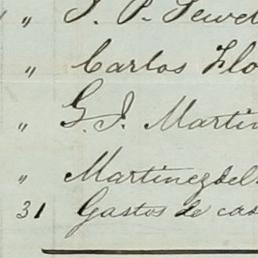 " J. P. Sewel
" Carlos Flo
" G. J. Martin
" Martinez del
31 Gastos de cas